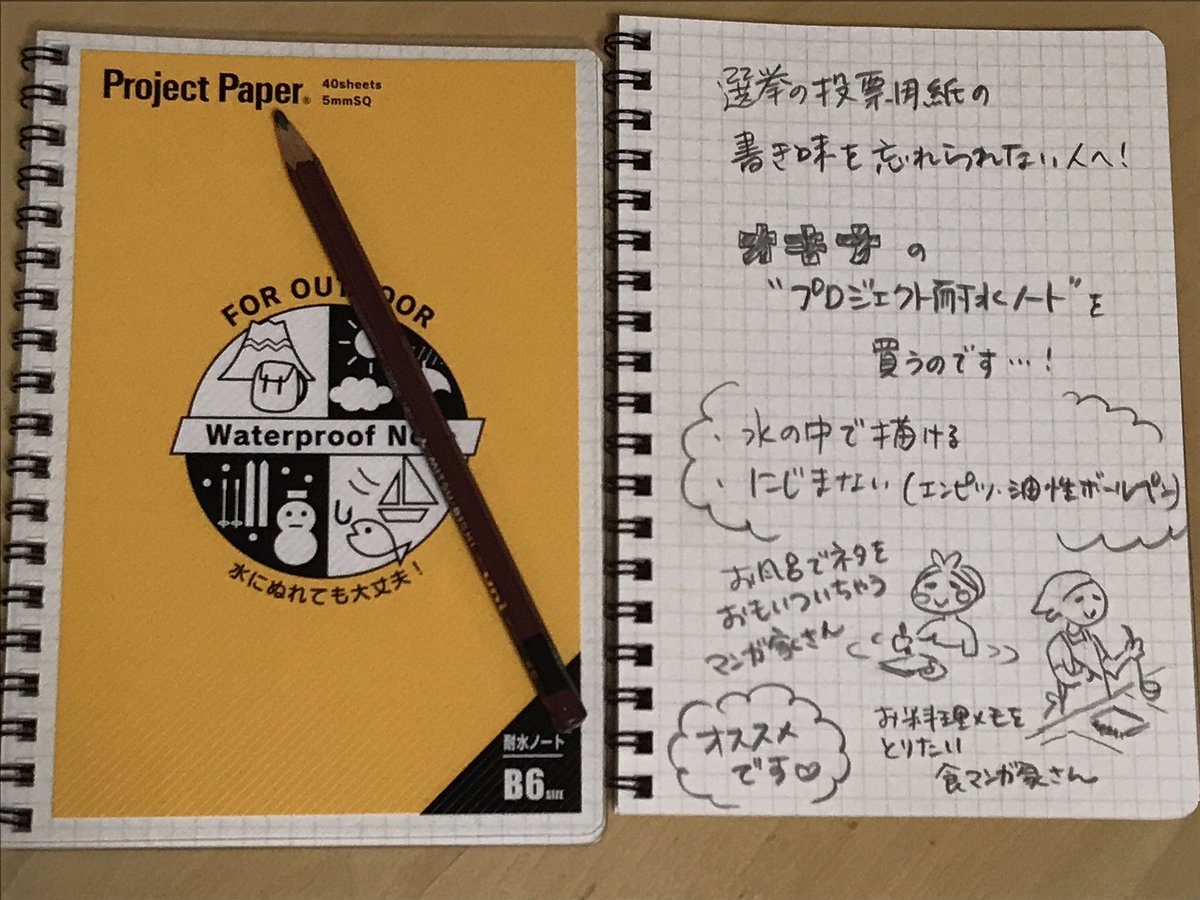 Project Paper®
40sheets
5mmSQ
FOR OUTDOOR
Waterproof No
水にぬれても大丈夫!
耐水ノート
B6 SIZE
MITSUBISHI
選挙の投票用紙の
書き味を忘れられない人へ!
オキナの
"プロジェクト耐水ノート"を
買うのです…!
・水の中で描ける
・にじまない(エンピツ・油性ボールペン)
お風呂でネタを
おもいついちゃう
マンガ家さん
お料理メモを
とりたい
食マンガ家さん
オススメ
です♡